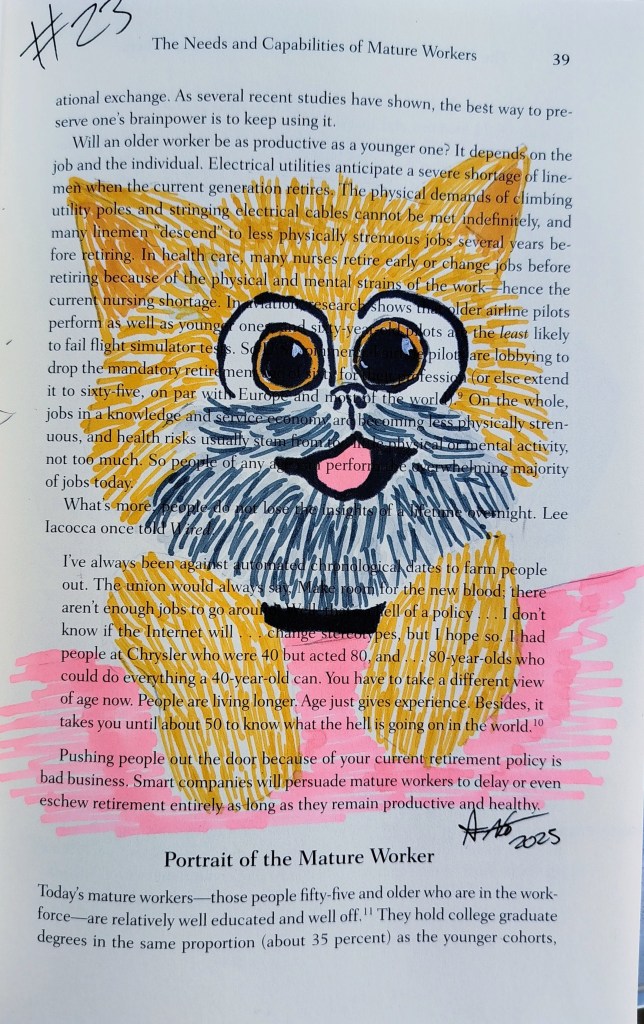 #23
The Needs and Capabilities of Mature Workers 39
ational exchange. As several recent studies have shown, the best way to pre-
serve one's brainpower is to keep using it.
Will an older worker be as productive as a younger one? It depends on the
job and the individual. Electrical utilities anticipate a severe shortage of line-
men when the current generation retires. The physical demands of climbing
utility poles and stringing electrical cables cannot be met indefinitely, and
many linemen "descend" to less physically strenuous jobs several years be-
fore retiring. In health care, many nurses retire early or change jobs before
retiring because of the physical and mental strains of the work—hence the
current nursing shortage. In aviation, research shows that older airline pilots
perform as well as younger ones, and sixty-year-old pilots are the least likely
to fail flight simulator tests. So commercial pilots are lobbying to
drop the mandatory retirement sixty for their profession (or else extend
it to sixty-five, on par with Europe and most of the world).⁹ On the whole,
jobs in a knowledge and service economy are becoming less physically stren-
uous, and health risks usually stem from too little physical or mental activity,
not too much. So people of any age can perform the overwhelming majority
of jobs today.
What's more, people do not lose the insights of a lifetime overnight. Lee
Iacocca once told Wired:
I've always been against automated chronological dates to farm people
out. The union would always say, Make room for the new blood; there
aren't enough jobs to go around. hell of a policy . . . I don't
know if the Internet will . . . change stereotypes, but I hope so. I had
people at Chrysler who were 40 but acted 80, and . . . 80-year-olds who
could do everything a 40-year-old can. You have to take a different view
of age now. People are living longer. Age just gives experience. Besides, it
takes you until about 50 to know what the hell is going on in the world.¹⁰
Pushing people out the door because of your current retirement policy is
bad business. Smart companies will persuade mature workers to delay or even
eschew retirement entirely as long as they remain productive and healthy.
2025
Portrait of the Mature Worker
Today's mature workers—those people fifty-five and older who are in the work-
force—are relatively well educated and well off.¹¹ They hold college graduate
degrees in the same proportion (about 35 percent) as the younger cohorts,